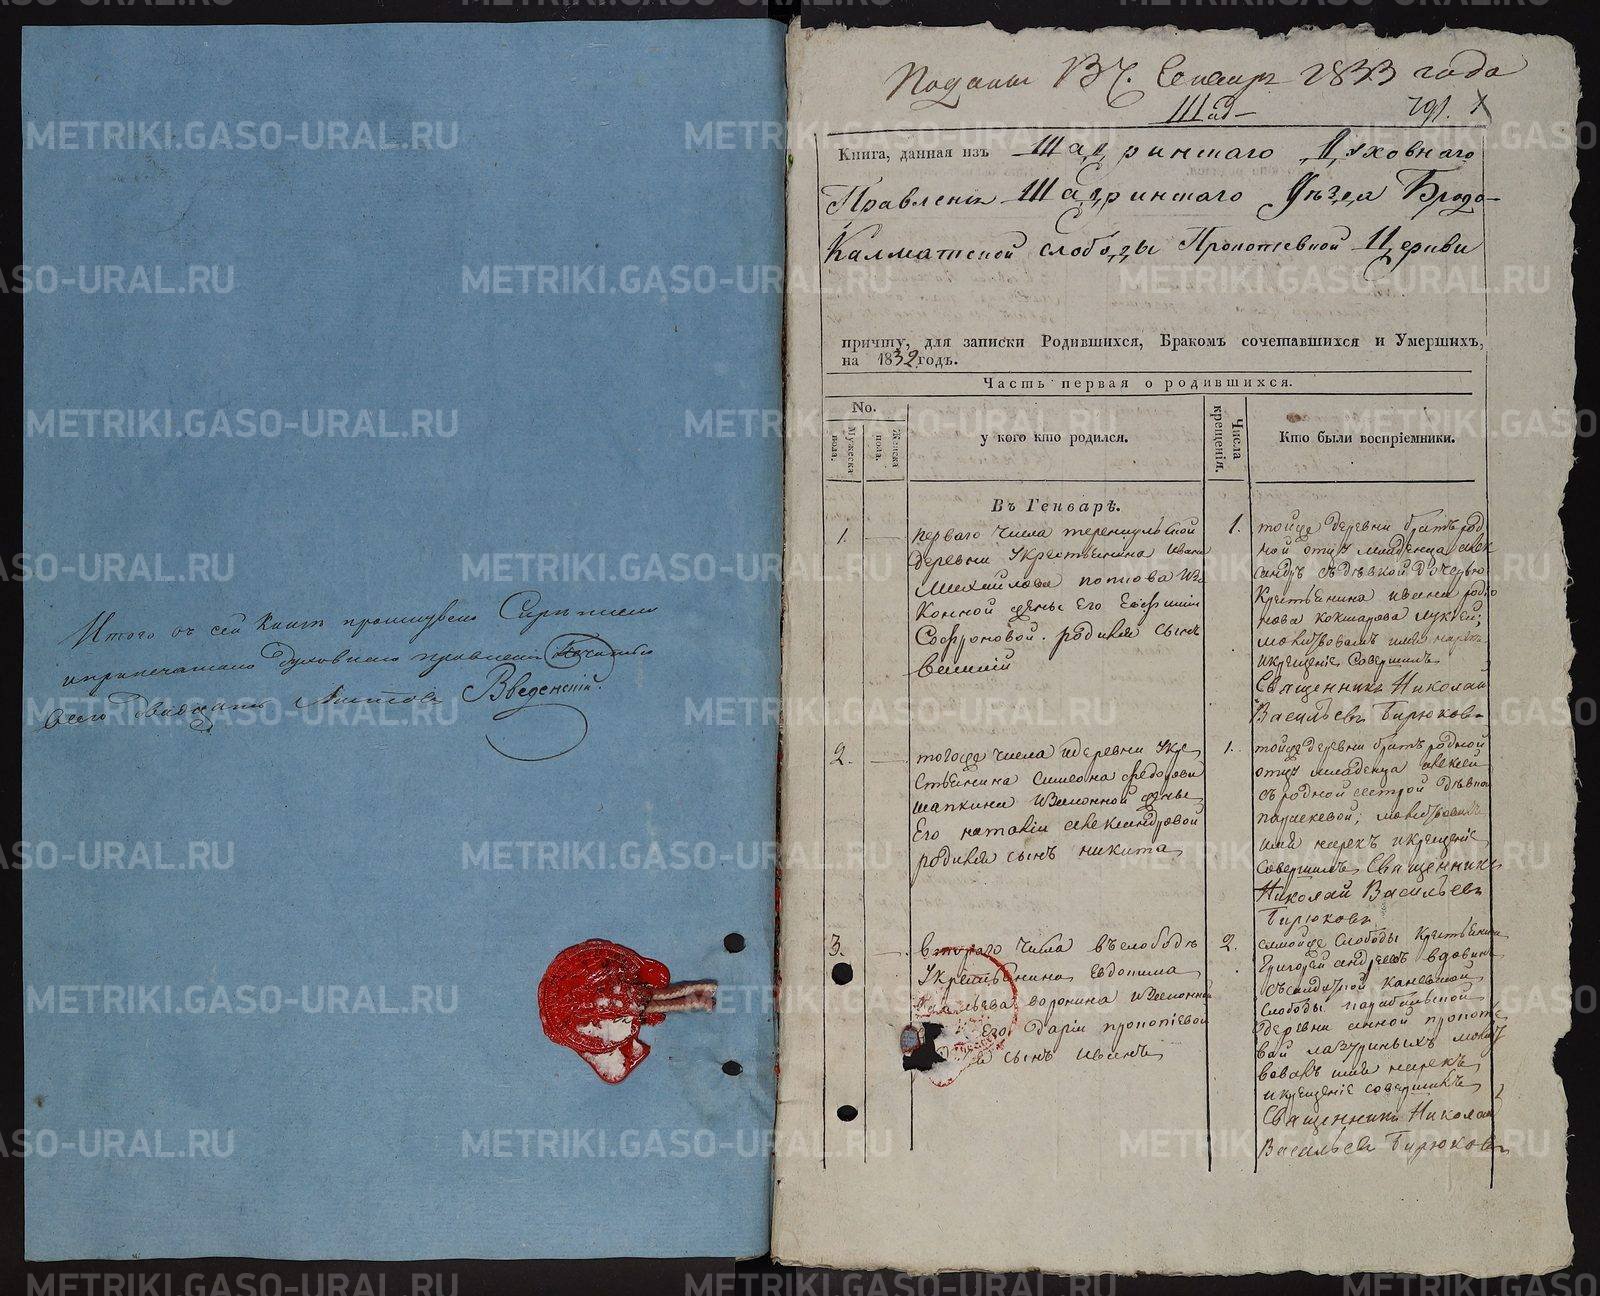 Итого въ сей Книгѣ прошнуровано
припечатано духовнаго правленія Печатью
всего двадцать Листовъ Введенскій.
Поданы 1833 года
Шад
Книга, данная изъ Шадринскаго Духовнаго
Правленія Шадринскаго Уѣзда Бродо-
Калматской слободы Прокопьевной Церкви
причту, для записки Родившихся, Бракомъ сочетавшихся и Умершихъ,
на 1832 годъ.
Часть первая о родившихся.
No.
Мужеска пола.
Женска пола.
у кого кто родился.
Числа крещенія.
Кто были воспріемники.
Въ Генварѣ.
1.
перваго числа теренкульской
деревни у крестьянина Ивана
Михайлова попова из
Конной жены его Евфиміи
Софроновой родился сынъ
василій
1.
тойже деревни братъ род
ной отцу младенца алек
сандръ съ дѣвкой дочерью
Крестьянина ивана родіо
нова кокшарова
имя нарекъ
и крещеніе совершилъ
Священникъ Николай
Васильевъ Бирюковъ
2.
тогоже числа деревни у кре
стьянина симеона федорова
шапкина
его наталіи александровой
родился сынъ никита
1.
тойже деревни братъ родной
отцу младенца алексей
съ родной сестрой дѣвкой
параскевой;
имя нарекъ и крещеніе
совершилъ Священникъ
Николай Васильевъ
Бирюковъ
3.
втораго числа въ слободѣ
у крестьянина Евдокима
воронина
его Даріи прокопіевой
сынъ иванъ
2.
самойже слободы крестьянинъ
Григорей андреевъ вдовинъ
съ
слободы
деревни анной прокопье
вой лазуриныхъ
имя нарекъ
и крещеніе совершилъ
Священникъ Николай
Васильевъ Бирюковъ
METRIKI.GASO-URAL.RU